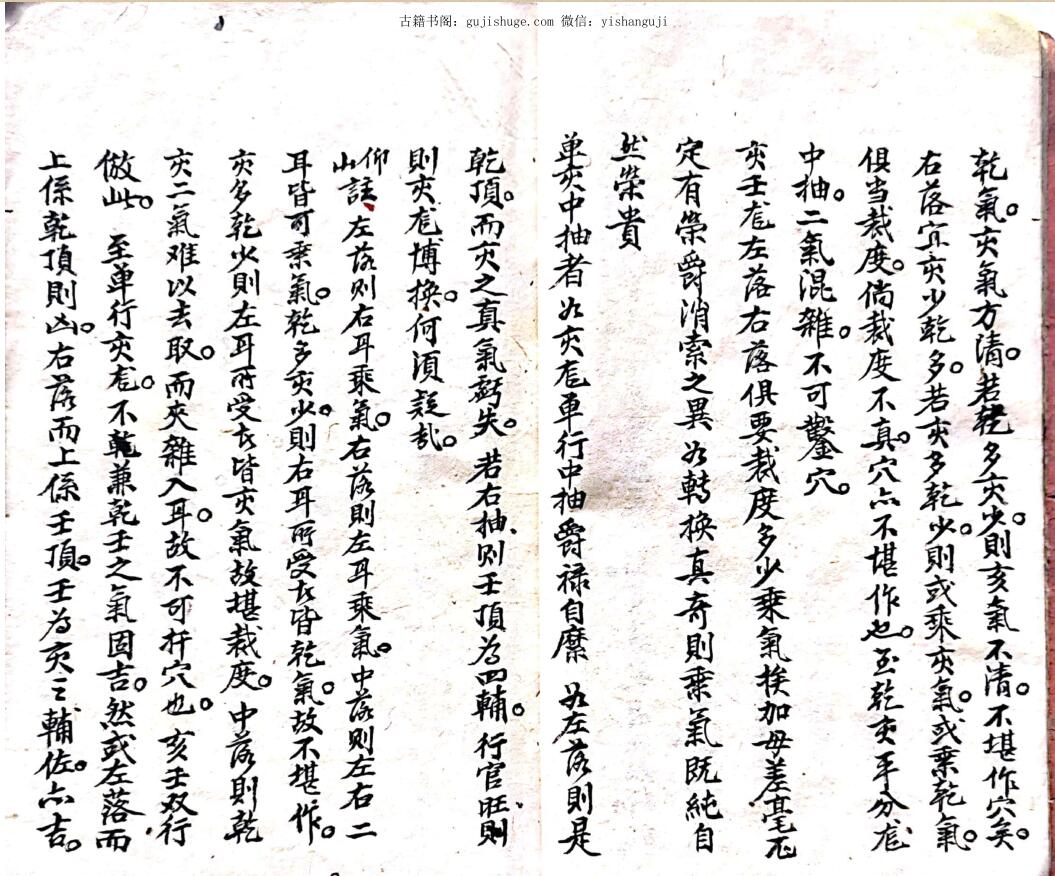 古籍书阁：gujishuge.com 微信：yishanguji
乾氣。亥氣方清。若乾多亥少。則亥氣不清。不堪作穴矣。
右落宜亥少乾多。若亥多乾少。則或乘亥氣。或乘乾氣。
俱当裁度。倘裁度不真。穴亦不堪作也。至乾亥平分龙
中抽。二氣混雜。不可鑿穴。
亥壬龙左落右落俱要裁度多少乘氣挨加毋差毫厘
定有榮爵消索之異如轉换真奇則乘氣既純自
然榮貴
单亥中抽者如亥龙单行中抽爵禄自縻 如左落則是
乾頂。而亥之真氣虧失。若右抽则壬頂為四輔。行官旺則
則亥龙博换。何須疑哉。
仰山註 左落则右耳乘氣。右落則左耳乘氣。中落则左右二
耳皆可乘氣。乾多亥少。則右耳所受者皆乾氣。故不堪作。
亥多乾少則左耳所受者皆亥氣故堪裁度。中落則乾
亥二氣难以去取。而夾雜入耳。故不可扦穴也。亥壬双行
倣此。 至单行亥龙。不兼乾壬之氣固吉。然或左落而
上係乾頂則凶。右落而上係壬頂。壬為亥之輔佐。亦吉。